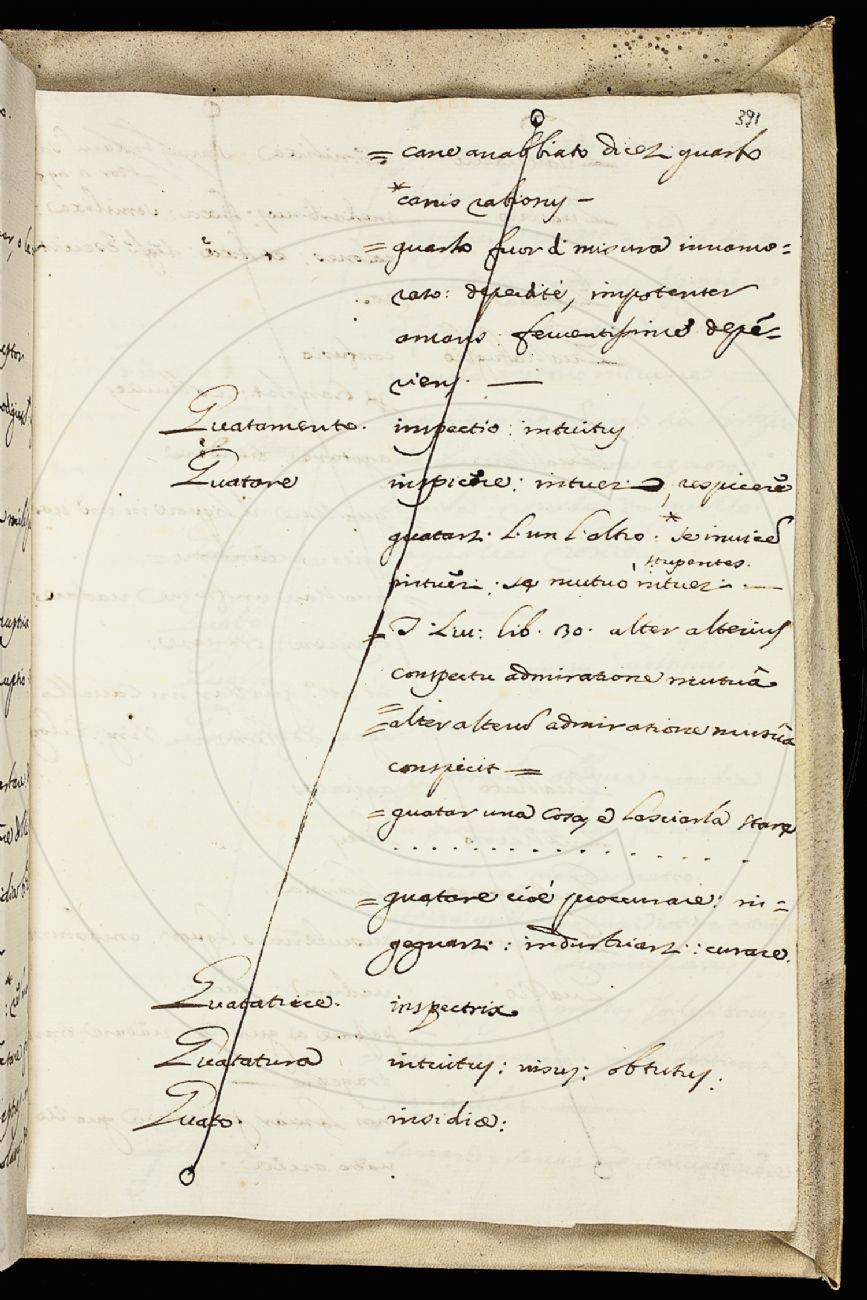 391
= cane arrabbiato dicez guasto
*canis rabiosus —
= guasto fuor di misura innamo=
rato: deperdité, impotenter
amans: ferventissimé depé=
riens. —
Guatamento. inspectio: intuitus
Guatare inspicere: intueri, respicere
guatarz. l'un l'altro: *se invicē
stupentes.
intueri: se mutuò intueri —
= T. Liv: lib. 30. alter alterius
conspectu admiratione mutuâ
= alter alterū admiratione mutuâ
conspicit =
= guatar una cosa, e lasciarla stare
. . . . . . . . . . . . . . .
= guatare cioé proccurare: in=
gegnarz.: industriarz.: curare.
Guatatrice. inspectrix
Guatatura intuitus: visus: obtutus:
Guato. insidiæ: